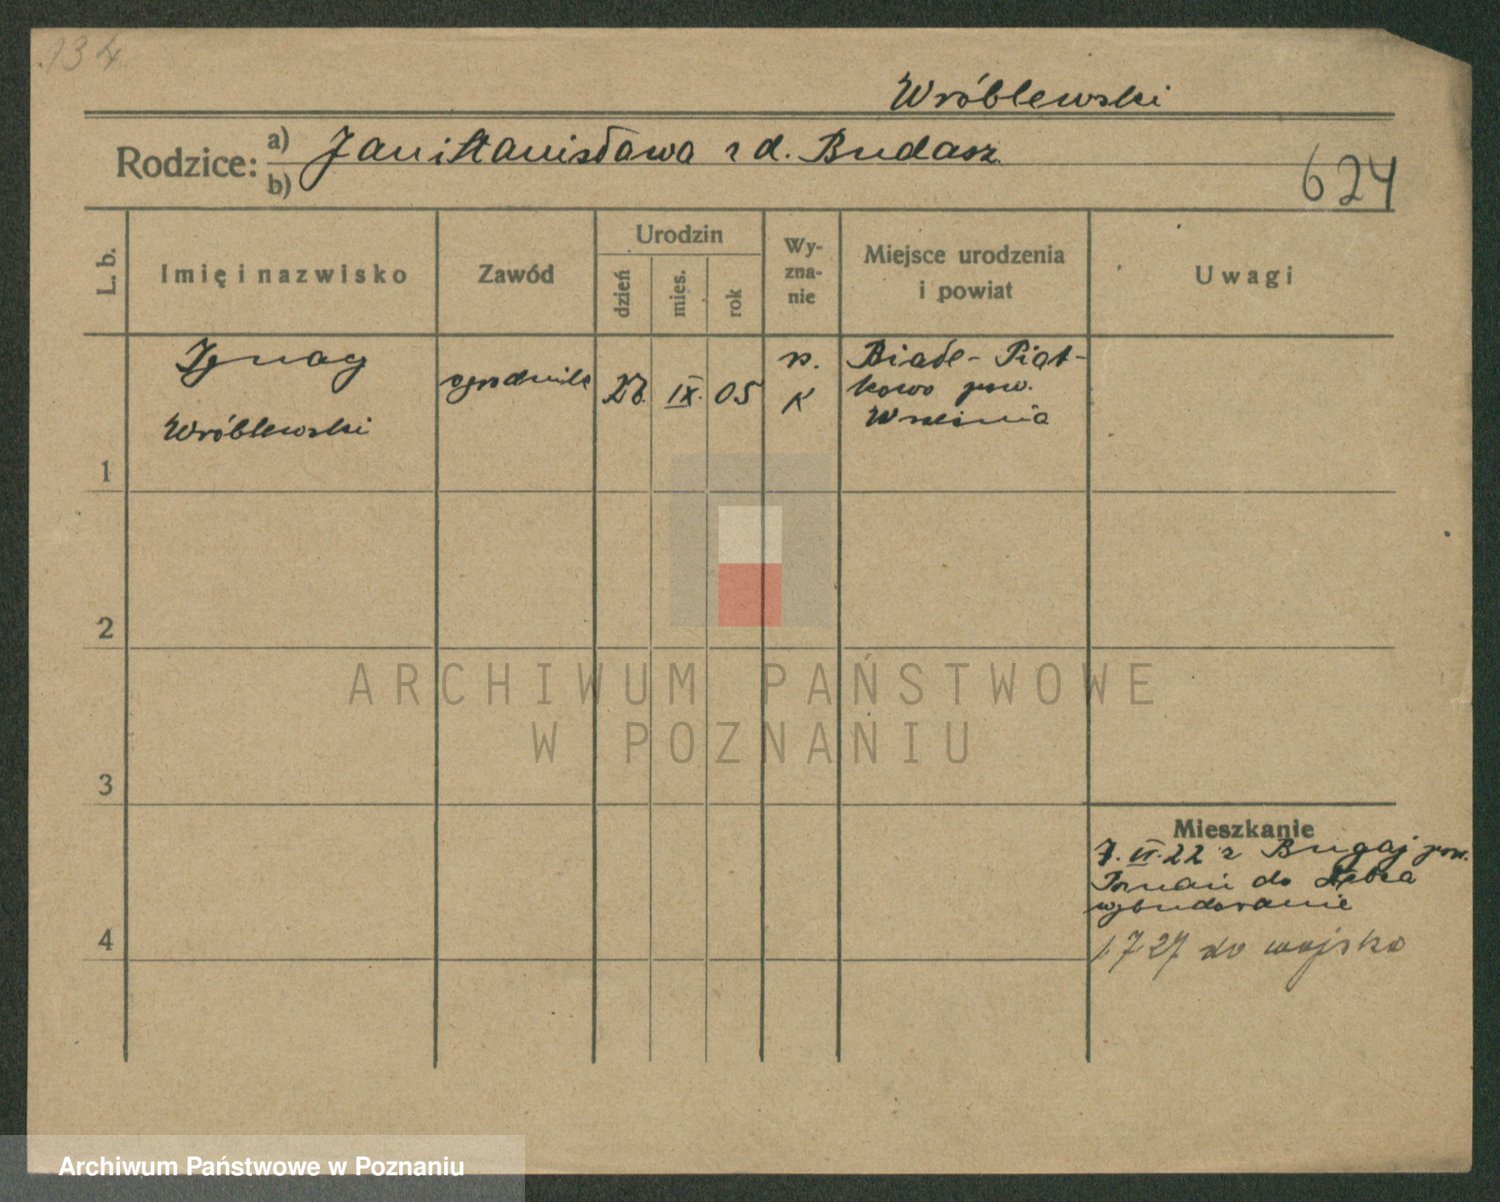 134
Wróblewski
Rodzice: a) Jan i Stanisława z d. Budasz
b)
624
L. b.
Imię i nazwisko
Zawód
Urodzin
dzień
mies.
rok
Wy-
zna-
nie
Miejsce urodzenia
i powiat
Uwagi
Ignacy
Wróblewski
ogrodnik
IX.
05
K
Białe-Piąt-
kowo pow.
Września
1
2
3
4
ARCHIWUM PAŃSTWOWE
W POZNANIU
Mieszkanie
7. 22 z Bugaj pow.
Poznań do
wybudowanie
1.7.27 do wojska
Archiwum Państwowe w Poznaniu